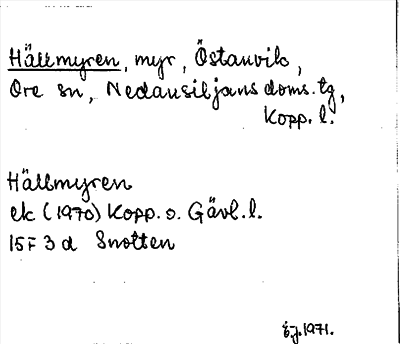 Hällmyren, myr, Östanvik,
Ore sn, Nedansiljans doms. tg,
Kopp. l.
Hällmyren
ek (1970) Kopp. o. Gävl. l.
15F 3 d Snotten
E.J. 1971.